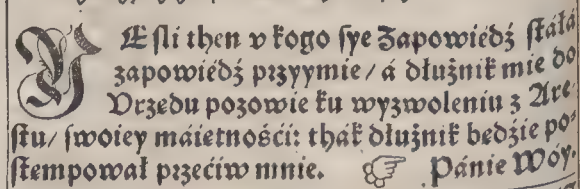 YEſli then v kogo ſye Zapowiedź ſtáłá
zapowiédź przyymie/ á dłużnik mie do
Vrzędu pozowie ku wyzwoleniu z Are⸗
ſtu/ ſwoiey máietnośći: thák dłużnik będźie po⸗
ſtempował przećiw mnie. ☞ Pánie Wóy⸗